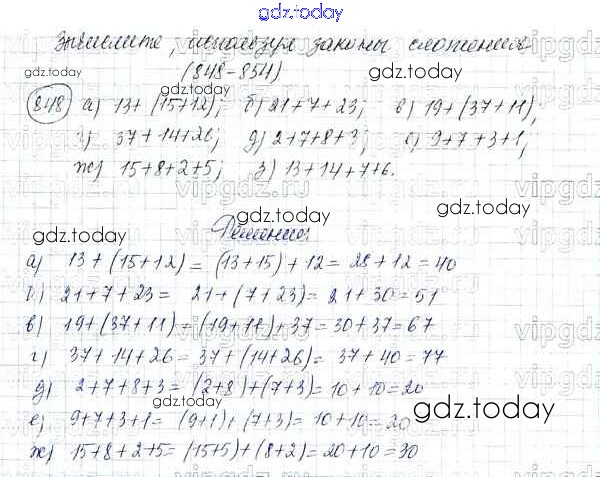 gdz.today
Вычислите, используя законы сложения
gdz.today
(848-854)
gdz.today
848 а) 13+(15+12); б) 21+7+23; в) 19+(37+11);
г) 37+14+26; д) 2+7+8+3; е) 9+7+3+1;
gdz.today
ж) 15+8+2+5; з) 13+14+7+6.
vipgdz.ru
gdz.today
Решение:
gdz.today
а) 13+(15+12)= (13+15)+12= 28+12=40
б) 21+7+23= 21+(7+23)= 21+30=51
в) 19+(37+11)=(19+11)+37=30+37=67
г) 37+14+26= 37+(14+26)= 37+40=77
д) 2+7+8+3= (2+8)+(7+3)=10+10=20
е) 9+7+3+1= (9+1)+(7+3)= 10+10=20
gdz.today
ж) 15+8+2+5= (15+5)+(8+2)=20+10=30